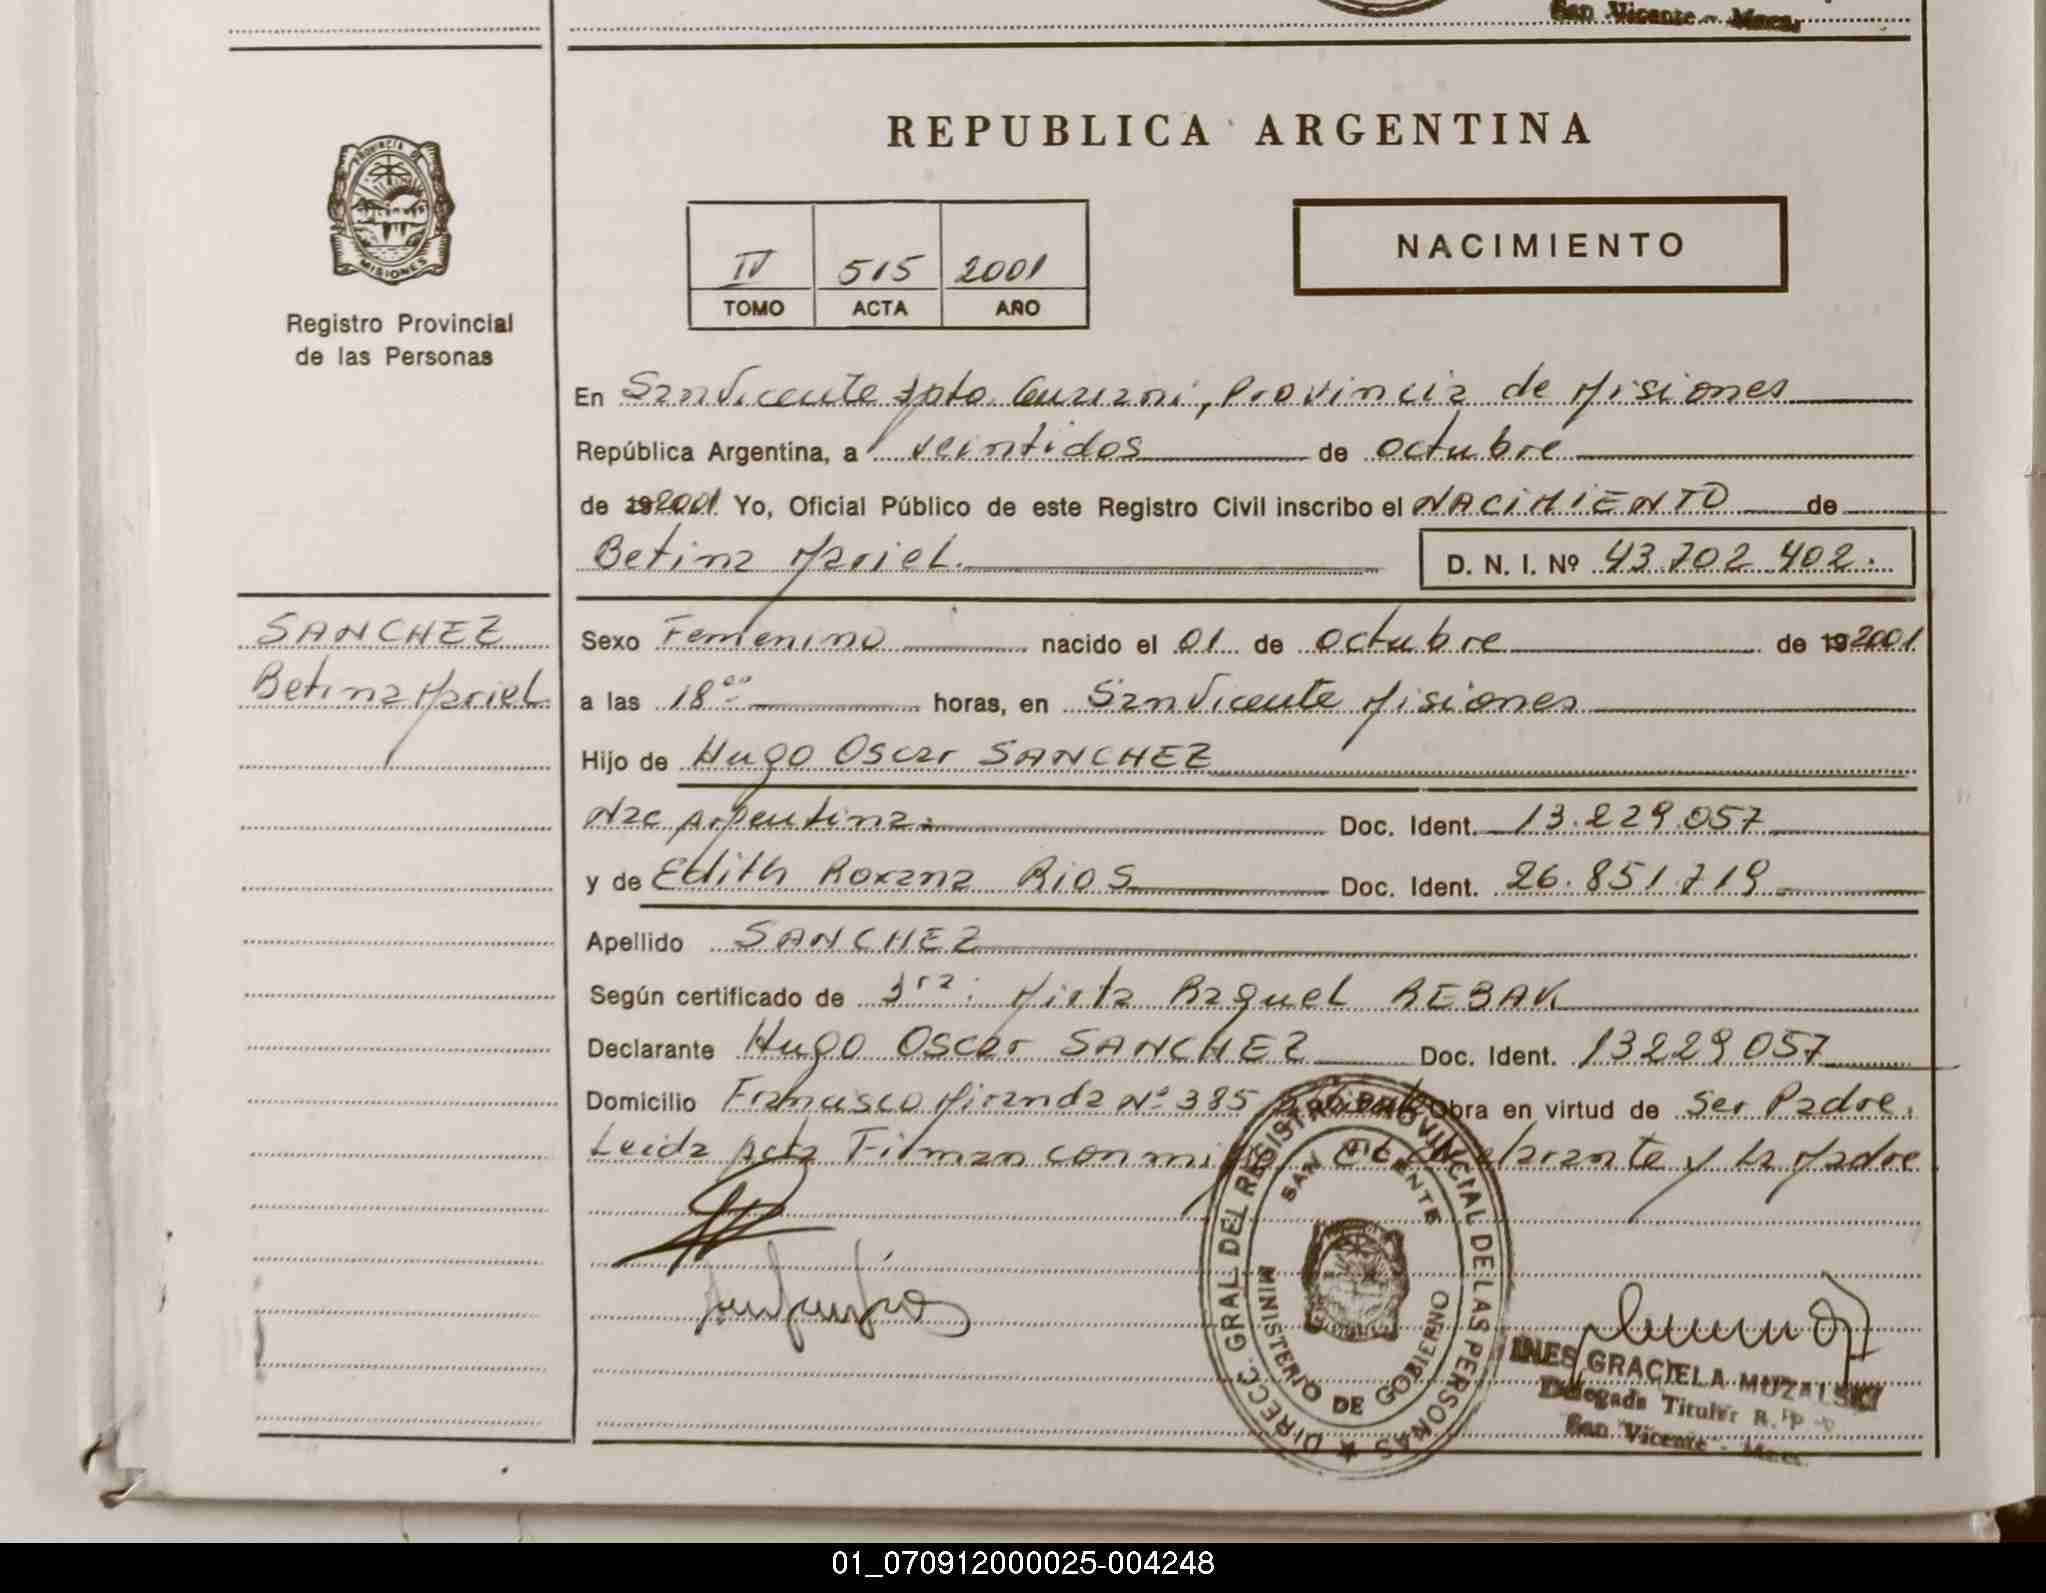 San Vicente - Mnes.
REPUBLICA ARGENTINA
PROVINCIA DE
MISIONES
Registro Provincial
de las Personas
IV 515 2001
TOMO ACTA AÑO
NACIMIENTO
En San Vicente Dpto. Guarani, Provincia de Misiones
República Argentina, a veintidos de octubre
de 192001 Yo, Oficial Público de este Registro Civil inscribo el NACIMIENTO de
Betina Mariel. D. N. I. Nº 43.702.402.
SANCHEZ
Betina Mariel
Sexo Femenino nacido el 01 de octubre de 192001
a las 18 00 horas, en San Vicente Misiones
Hijo de Hugo Oscar SANCHEZ
Nac Argentina. Doc. Ident. 13.229.057
y de Edith Roxana RIOS Doc. Ident. 26.851.719
Apellido SANCHEZ
Según certificado de Mirta Raquel REBAK
Declarante Hugo Oscar SANCHEZ Doc. Ident. 13229057
Domicilio Francisco Miranda Nº 385 Obra en virtud de ser Padre.
Leida Acta Firman conmigo el declarante y la Madre
DIRECC. GRAL. DEL REGISTRO PROVINCIAL DE LAS PERSONAS
SAN VICENTE
MINISTERIO DE GOBIERNO
INES GRACIELA MUZALSKI
Delegada Titular R.
San Vicente - Mnes.
01_070912000025-004248